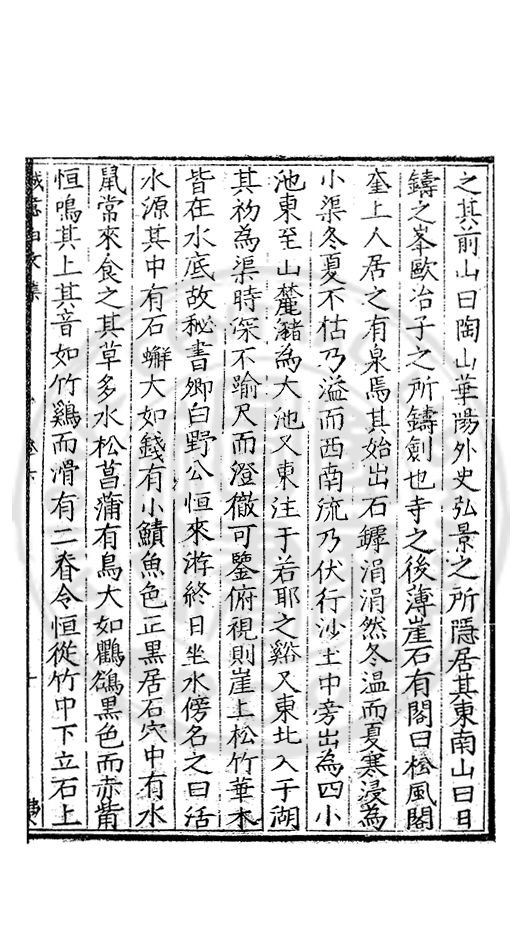 之其前山曰陶山華陽外史弘景之所隱居其東南山曰日
鑄之峯歐冶子之所鑄劍也寺之後薄崖石有閣曰松風閣
奎上人居之有泉焉其始出石罅涓涓然冬温而夏寒浸為
小渠冬夏不枯乃溢而西南流乃伏行沙土中旁出為四小
池東至山麓瀦為大池又東注于若耶之谿又東北入于湖
其初為渠時深不踰尺而澄徹可鑒俯視則崖上松竹華木
皆在水底故秘書卿白野公恒來游終日坐水傍名之曰活
水源其中有石蠏大如錢有小鰿魚色正黑居石穴中有水
鼠常來食之其草多水松菖蒲有鳥大如鸜鵒黑色而赤觜
恒鳴其上其音如竹鷄而滑有二脊令恒從竹中下立石上
誠意伯文集 卷六